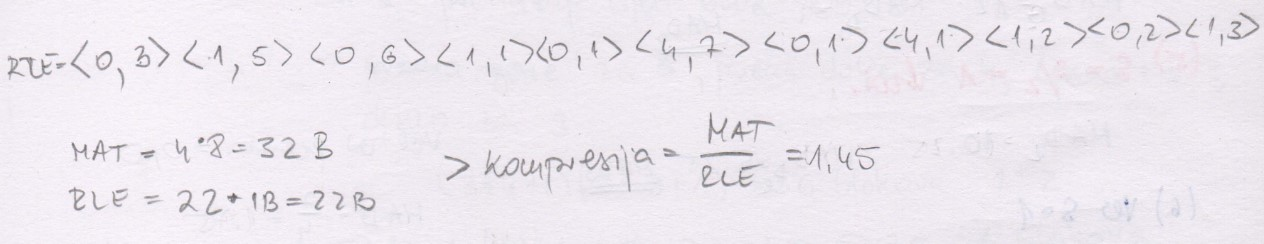 RLE=<0,3><1,5><0,6><1,1><0,1><4,7><0,1><4,1><1,2><0,2><1,3>
MAT = 4*8=32B
RLE = 22*1B=22B
> kompresija = MAT / RLE = 1,45